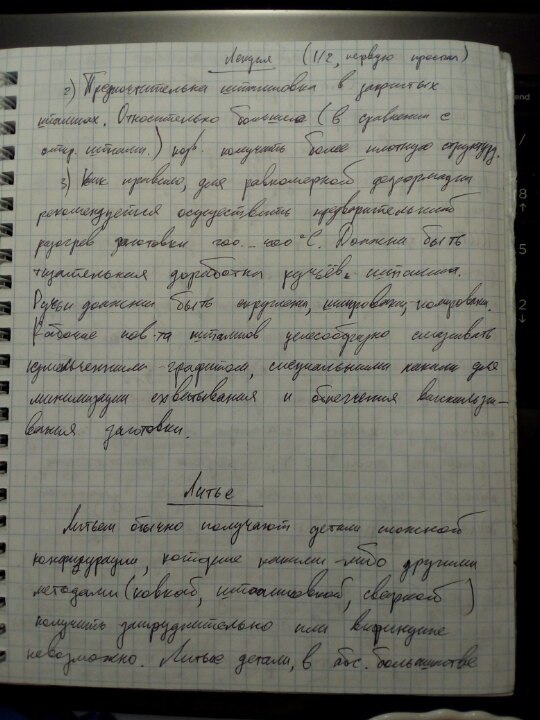 Лекция (1/2, первую проспал)
2) Предпочтительна штамповка в закрытых
штампах. Относительно больших (в сравнении с
откр. штамп.) позв. получить более плотную структуру.
3) Как правило, для равномерной деформации
рекомендуется осуществить предварительный
разогрев заготовки 200...400°С. Должна быть
тщательная доработка ручьёв штампа.
Ручьи должны быть округлены, шлифованы, полированы.
Рабочие пов-та штампов целесообразно смазывать
измельченным графитом, специальными для
минимизации схватывания и облегчения выскальзы-
вания заготовки.
Литье
Литьем обычно получают детали сложной
конфигурации, которые какими-либо другими
методами (ковкой, штамповкой, сваркой)
получить затруднительно или вообще
невозможно. Литые детали, в абс. большинстве